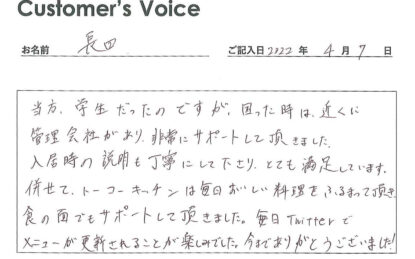 Customer's Voice
お名前 長田 ご記入日 2022 年 4 月 7 日
当方、学生だったのですが、困った時は、近くに
管理会社があり、非常にサポートして頂きました。
入居時の説明も丁寧にして下さり、とても満足しています。
併せて、トーコーキッチンは毎日おいしい料理をふるまって頂き
食の面でもサポートして頂きました。毎日Twitterで
メニューが更新されることが楽しみでした。今までありがとうございました!